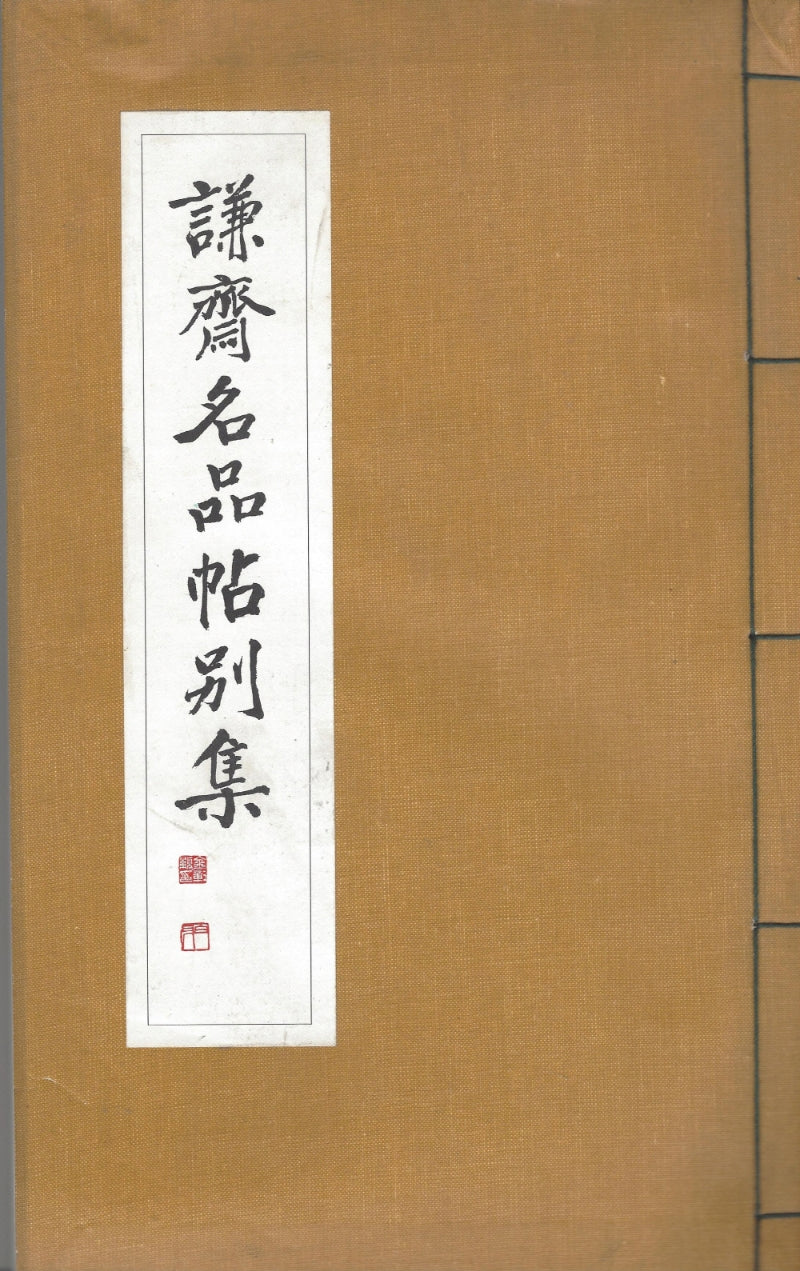 謙齋名品帖別集